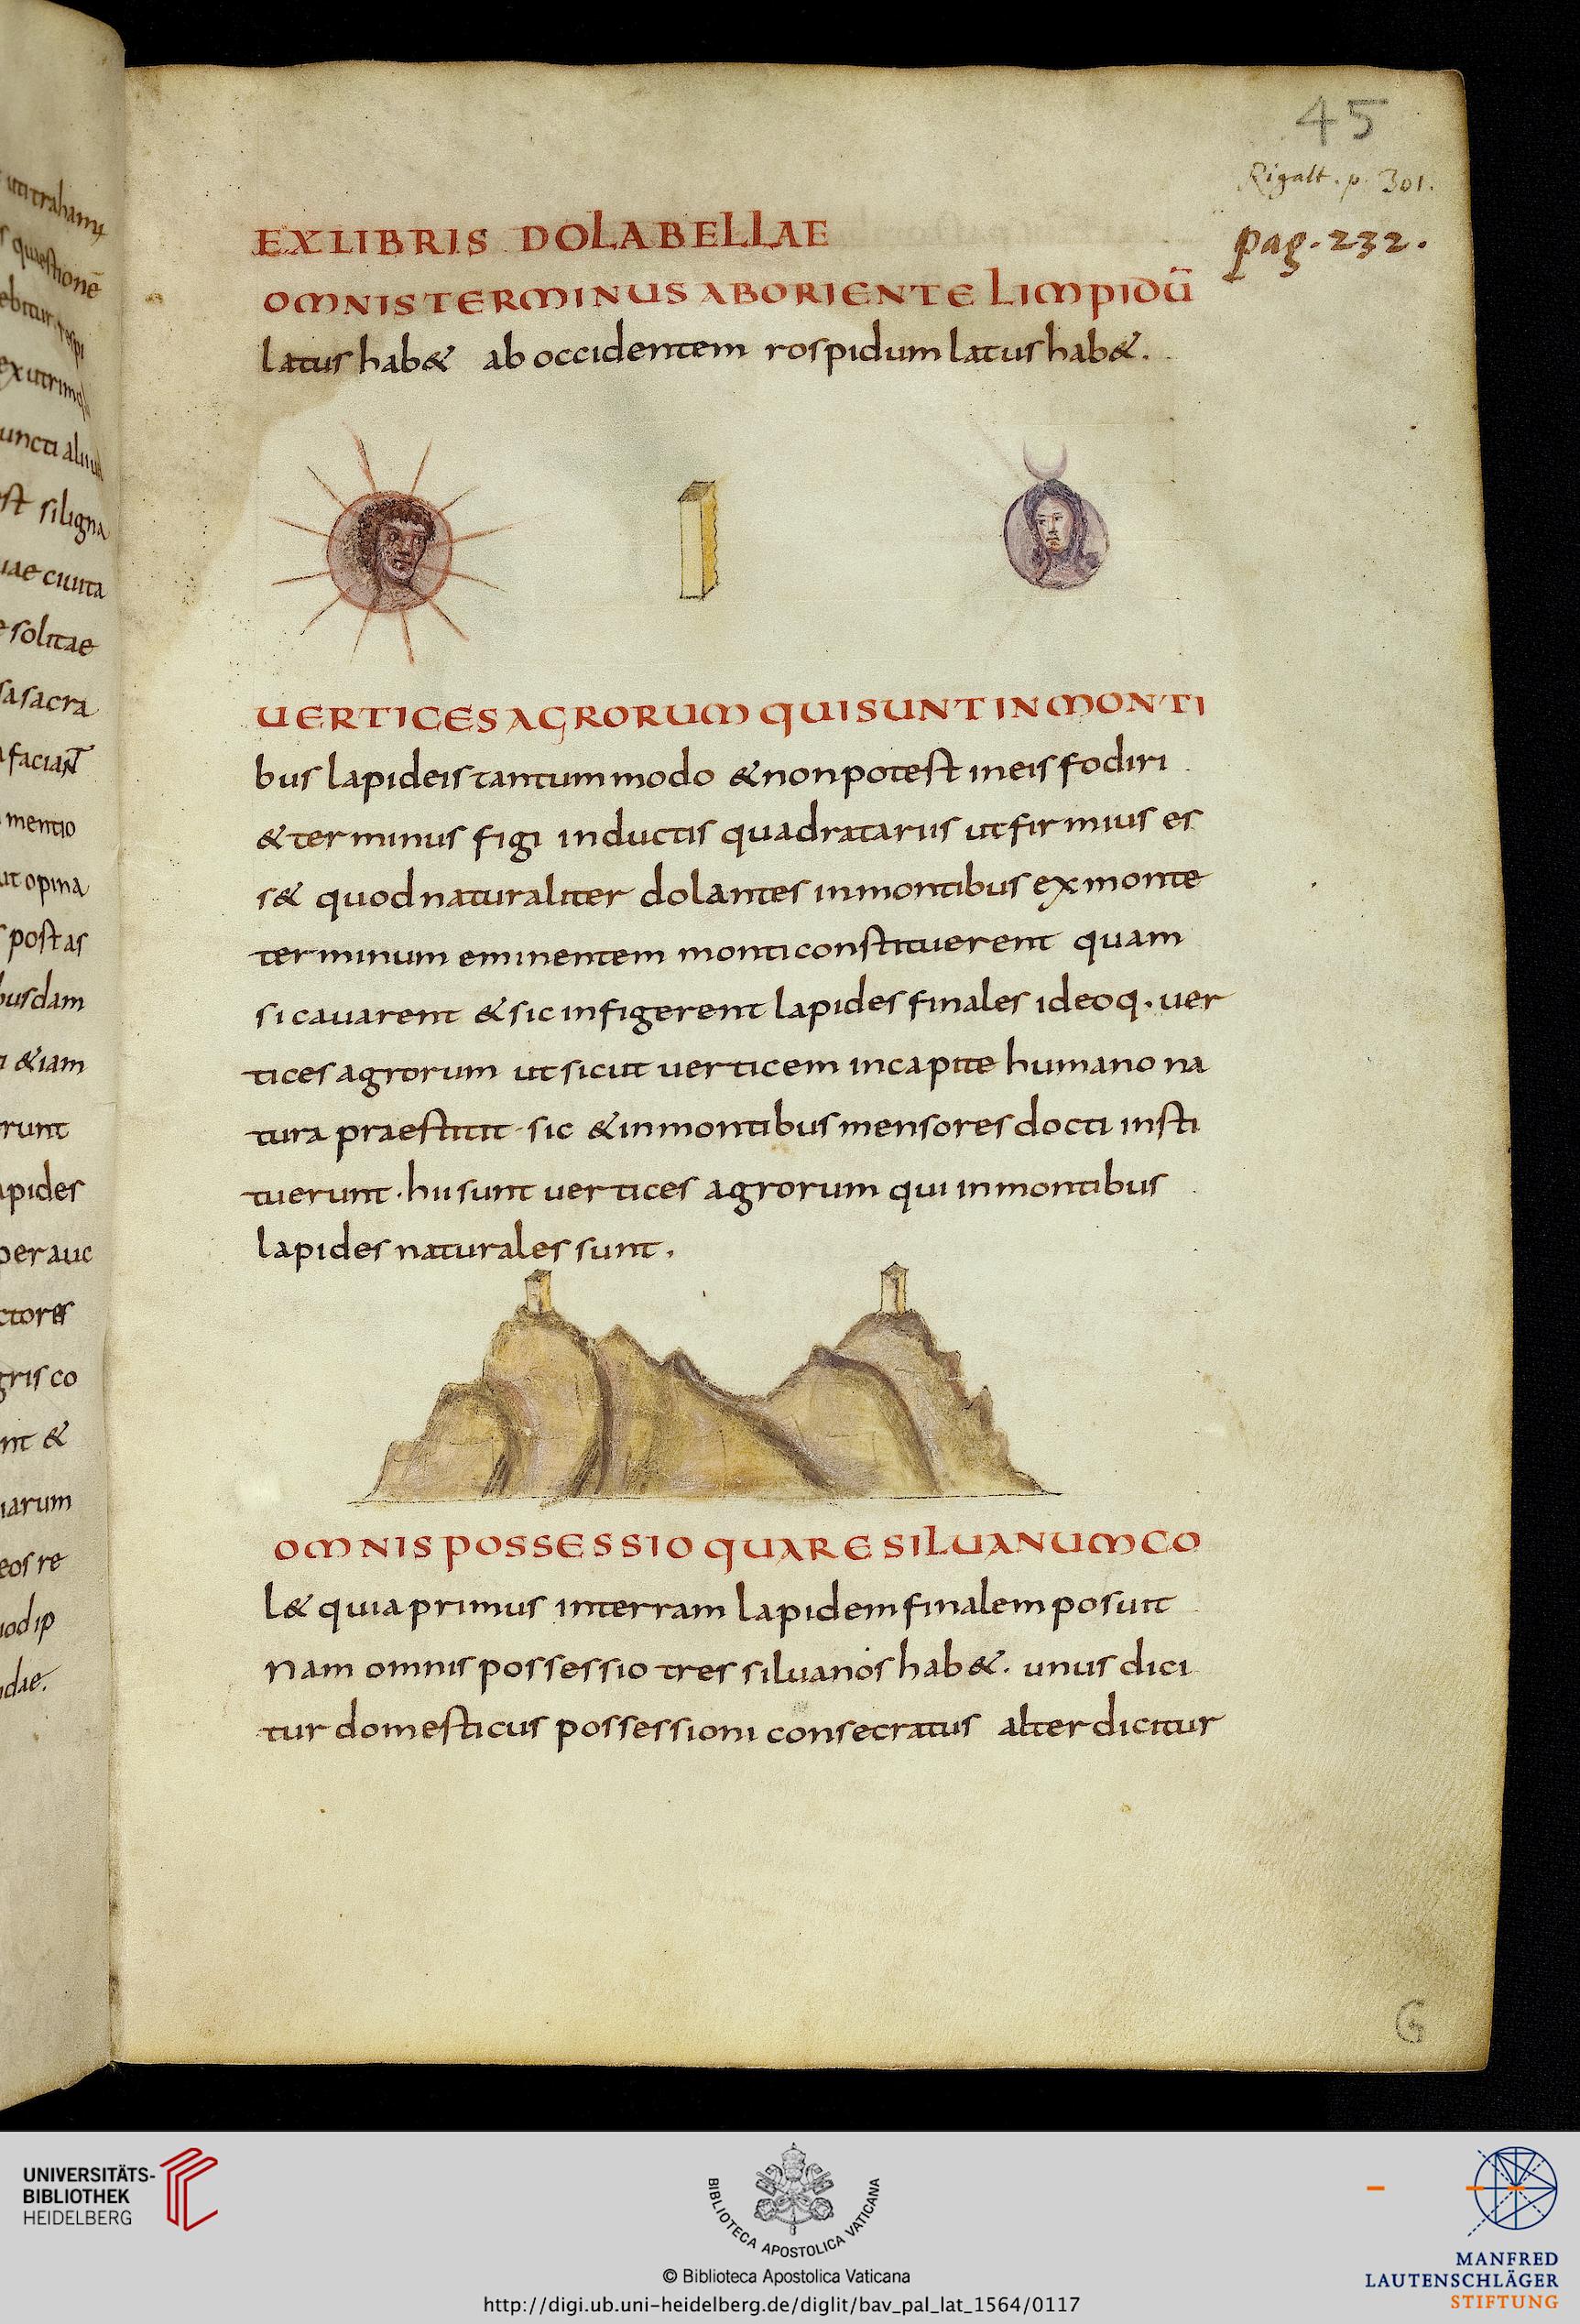 45
Rigalt. p. 301.
pag. 232.
EX LIBRIS DOLABELLAE
OMNIS TERMINUS AB ORIENTE LIMPIDŪ
latus hab& ab occidentem rospidum latus hab&.
UERTICES AGRORUM QUI SUNT IN MONTI
bus lapideis tantummodo & non potest in eis fodiri
& terminus figi inductis quadratariis ut firmius es
s& quod naturaliter dolantes in montibus ex monte
terminum eminentem monti constituerent quam
si cauarent & sic infigerent lapides finales ideoq. uer
tices agrorum ut sicut uerticem in capite humano na
tura praestitit sic & in montibus mensores docti insti
tuerunt. hii sunt uertices agrorum qui in montibus
lapides naturales sunt.
OMNIS POSSESSIO QUARE SILUANUM CO
l& quia primus in terram lapidem finalem posuit
Nam omnis possessio tres siluanos hab&. unus dici
tur domesticus possessioni consecratus alter dicitur
G
uti trahamus
quaestionē
ebitur
ex utrimq
uncti aliud
st siligna
uae ciuita
solitae
sa sacra
faciant
mentio
ut opina
postas
busdam
&iam
runt
apides
per auc
ctores
gris co
nt &
iarum
eos re
uod ip
idae.
UNIVERSITÄTS-
BIBLIOTHEK
HEIDELBERG
BIBLIOTECA APOSTOLICA VATICANA
© Biblioteca Apostolica Vaticana
http://digi.ub.uni-heidelberg.de/diglit/bav_pal_lat_1564/0117
MANFRED
LAUTENSCHLÄGER
STIFTUNG